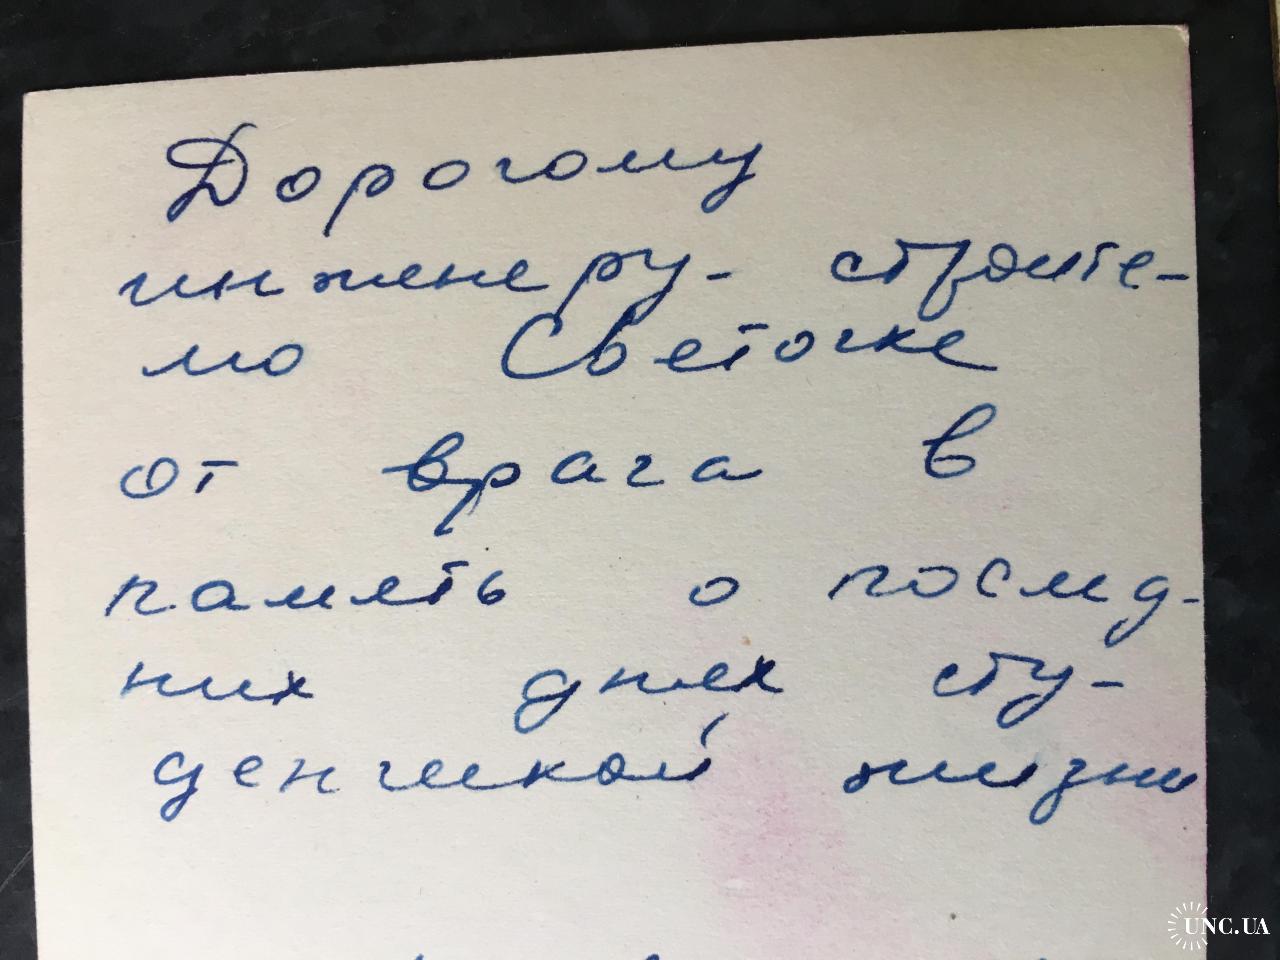 Дорогому
инженеру- строите-
лю Светочке
от врага в
память о послед-
них днях сту-
денческой жизни
UNC.UA